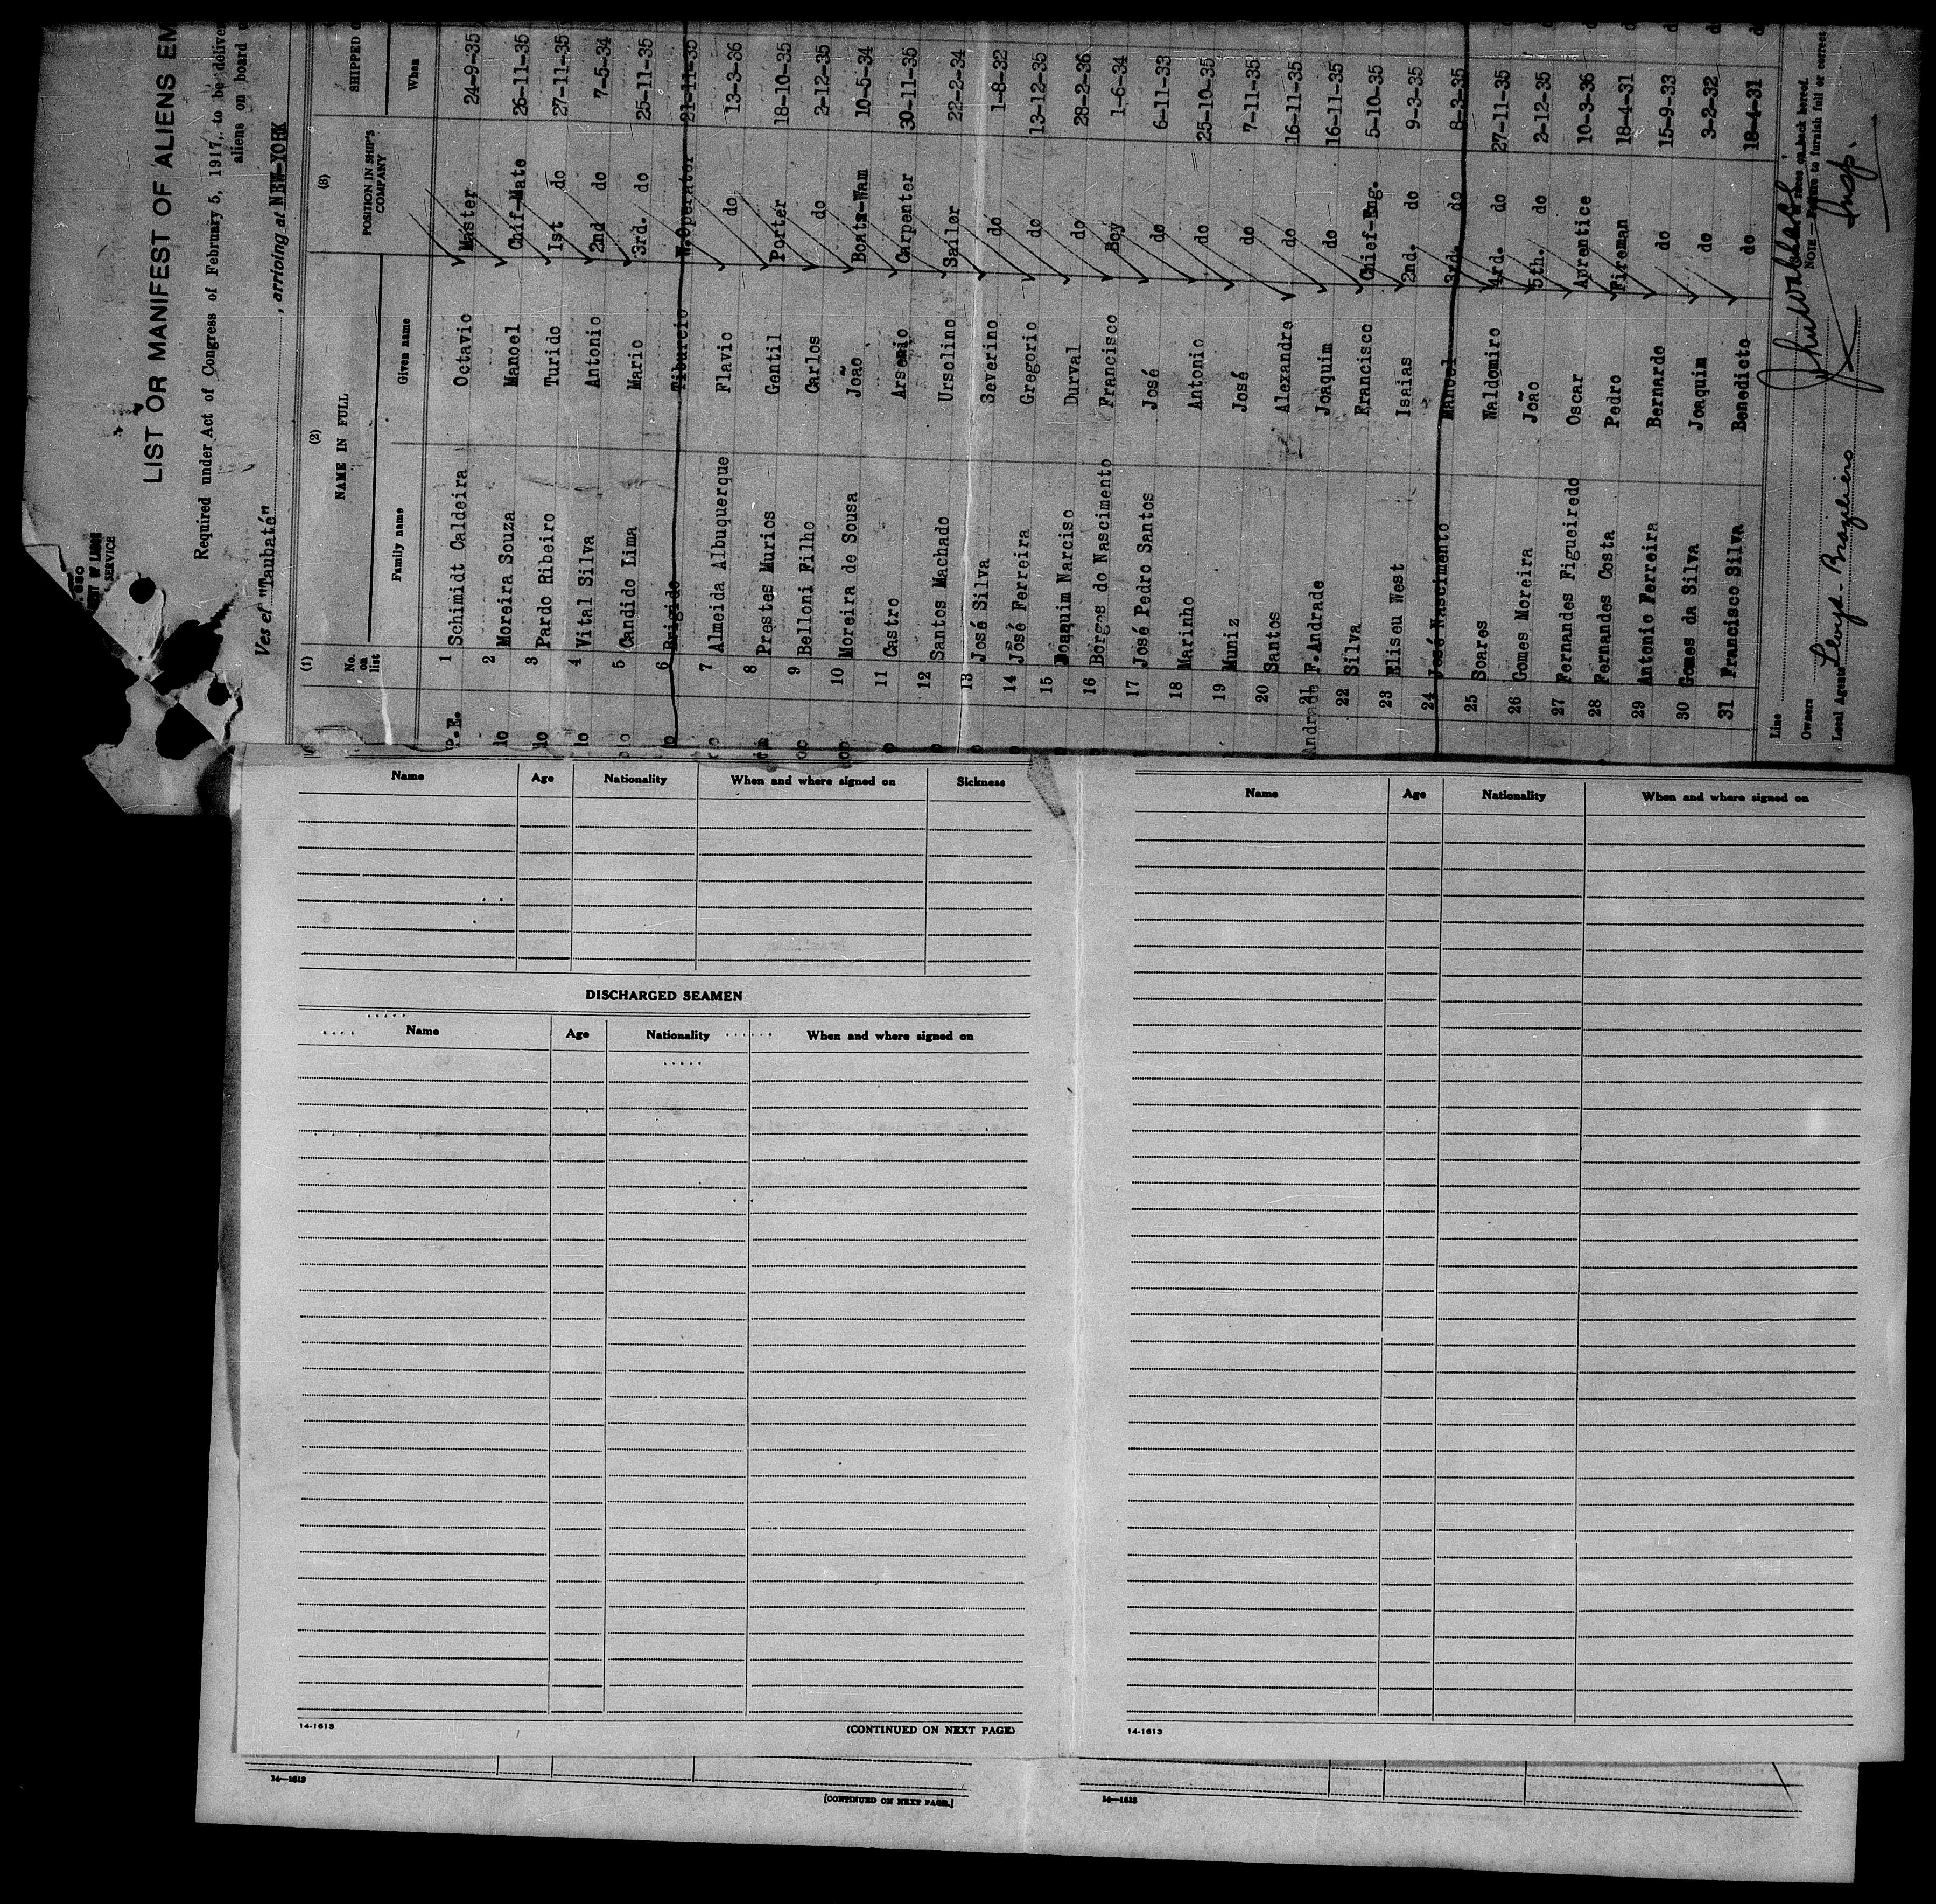 LIST OR MANIFEST OF ALIENS EM
Required under Act of Congress of February 5, 1917, to be deliver
aliens on board
SERVICE
Vessel "Taubaté" , arriving at NEW-YORK
(1) (2) (3)
No. on list NAME IN FULL POSITION IN SHIP'S COMPANY SHIPPED O
Family name Given name When
P.E. 1 Schimidt Caldeira Octavio Master 24-9-35
do 2 Moreira Souza Manoel Chif-Mate 26-11-35
do 3 Pardo Ribeiro Turido 1st do 27-11-35
do 4 Vital Silva Antonio 2nd do 7-5-34
do 5 Candido Lima Mario 3rd. do 25-11-35
do 6 Brigido Tiburcio W.Operator 21-11-35
7 Almeida Albuquerque Flavio do 13-3-36
8 Prestes Murios Gentil Porter 18-10-35
9 Belloni Filho Carlos do 2-12-35
10 Moreira de Sousa João Boatx-Wam 10-5-34
11 Castro Arsenio Carpenter 30-11-35
12 Santos Machado Ursolino Sailor 22-2-34
13 José Silva Severino do 1-8-32
14 José Ferreira Gregorio do 13-12-35
15 Joaquim Narciso Durval do 28-2-36
16 Borges do Nascimento Francisco Boy 1-6-34
17 José Pedro Santos José do 6-11-33
18 Marinho Antonio do 25-10-35
19 Muniz José do 7-11-35
20 Santos Alexandre do 16-11-35
Andrade 21 F.Andrade Joaquim do 16-11-35
22 Silva Francisco Chief-Eng. 5-10-35
23 Eliseu West Isaias 2nd. do 9-3-35
24 José Nascimento Manoel 3rd. do 8-3-35
25 Soares Waldomiro 4rd. do 27-11-35
26 Gomes Moreira João 5th. do 2-12-35
27 Fernandes Figueiredo Oscar Aprentice 10-3-36
28 Fernandes Costa Pedro Fireman 18-4-31
29 Antonio Ferreira Bernardo do 15-9-33
30 Gomes da Silva Joaquim do 3-2-32
31 Francisco Silva Benedicto do 18-4-31
Line
Owners
Local Agents Lloyd-Brazileiro
Insp.
on back hereof.
NOTE.—Failure to furnish full or correct
Name Age Nationality When and where signed on Sickness
DISCHARGED SEAMEN
Name Age Nationality When and where signed on
14-1613 (CONTINUED ON NEXT PAGE)
Name Age Nationality When and where signed on
14-1613
14—1613 [CONTINUED ON NEXT PAGE.]
14—1613